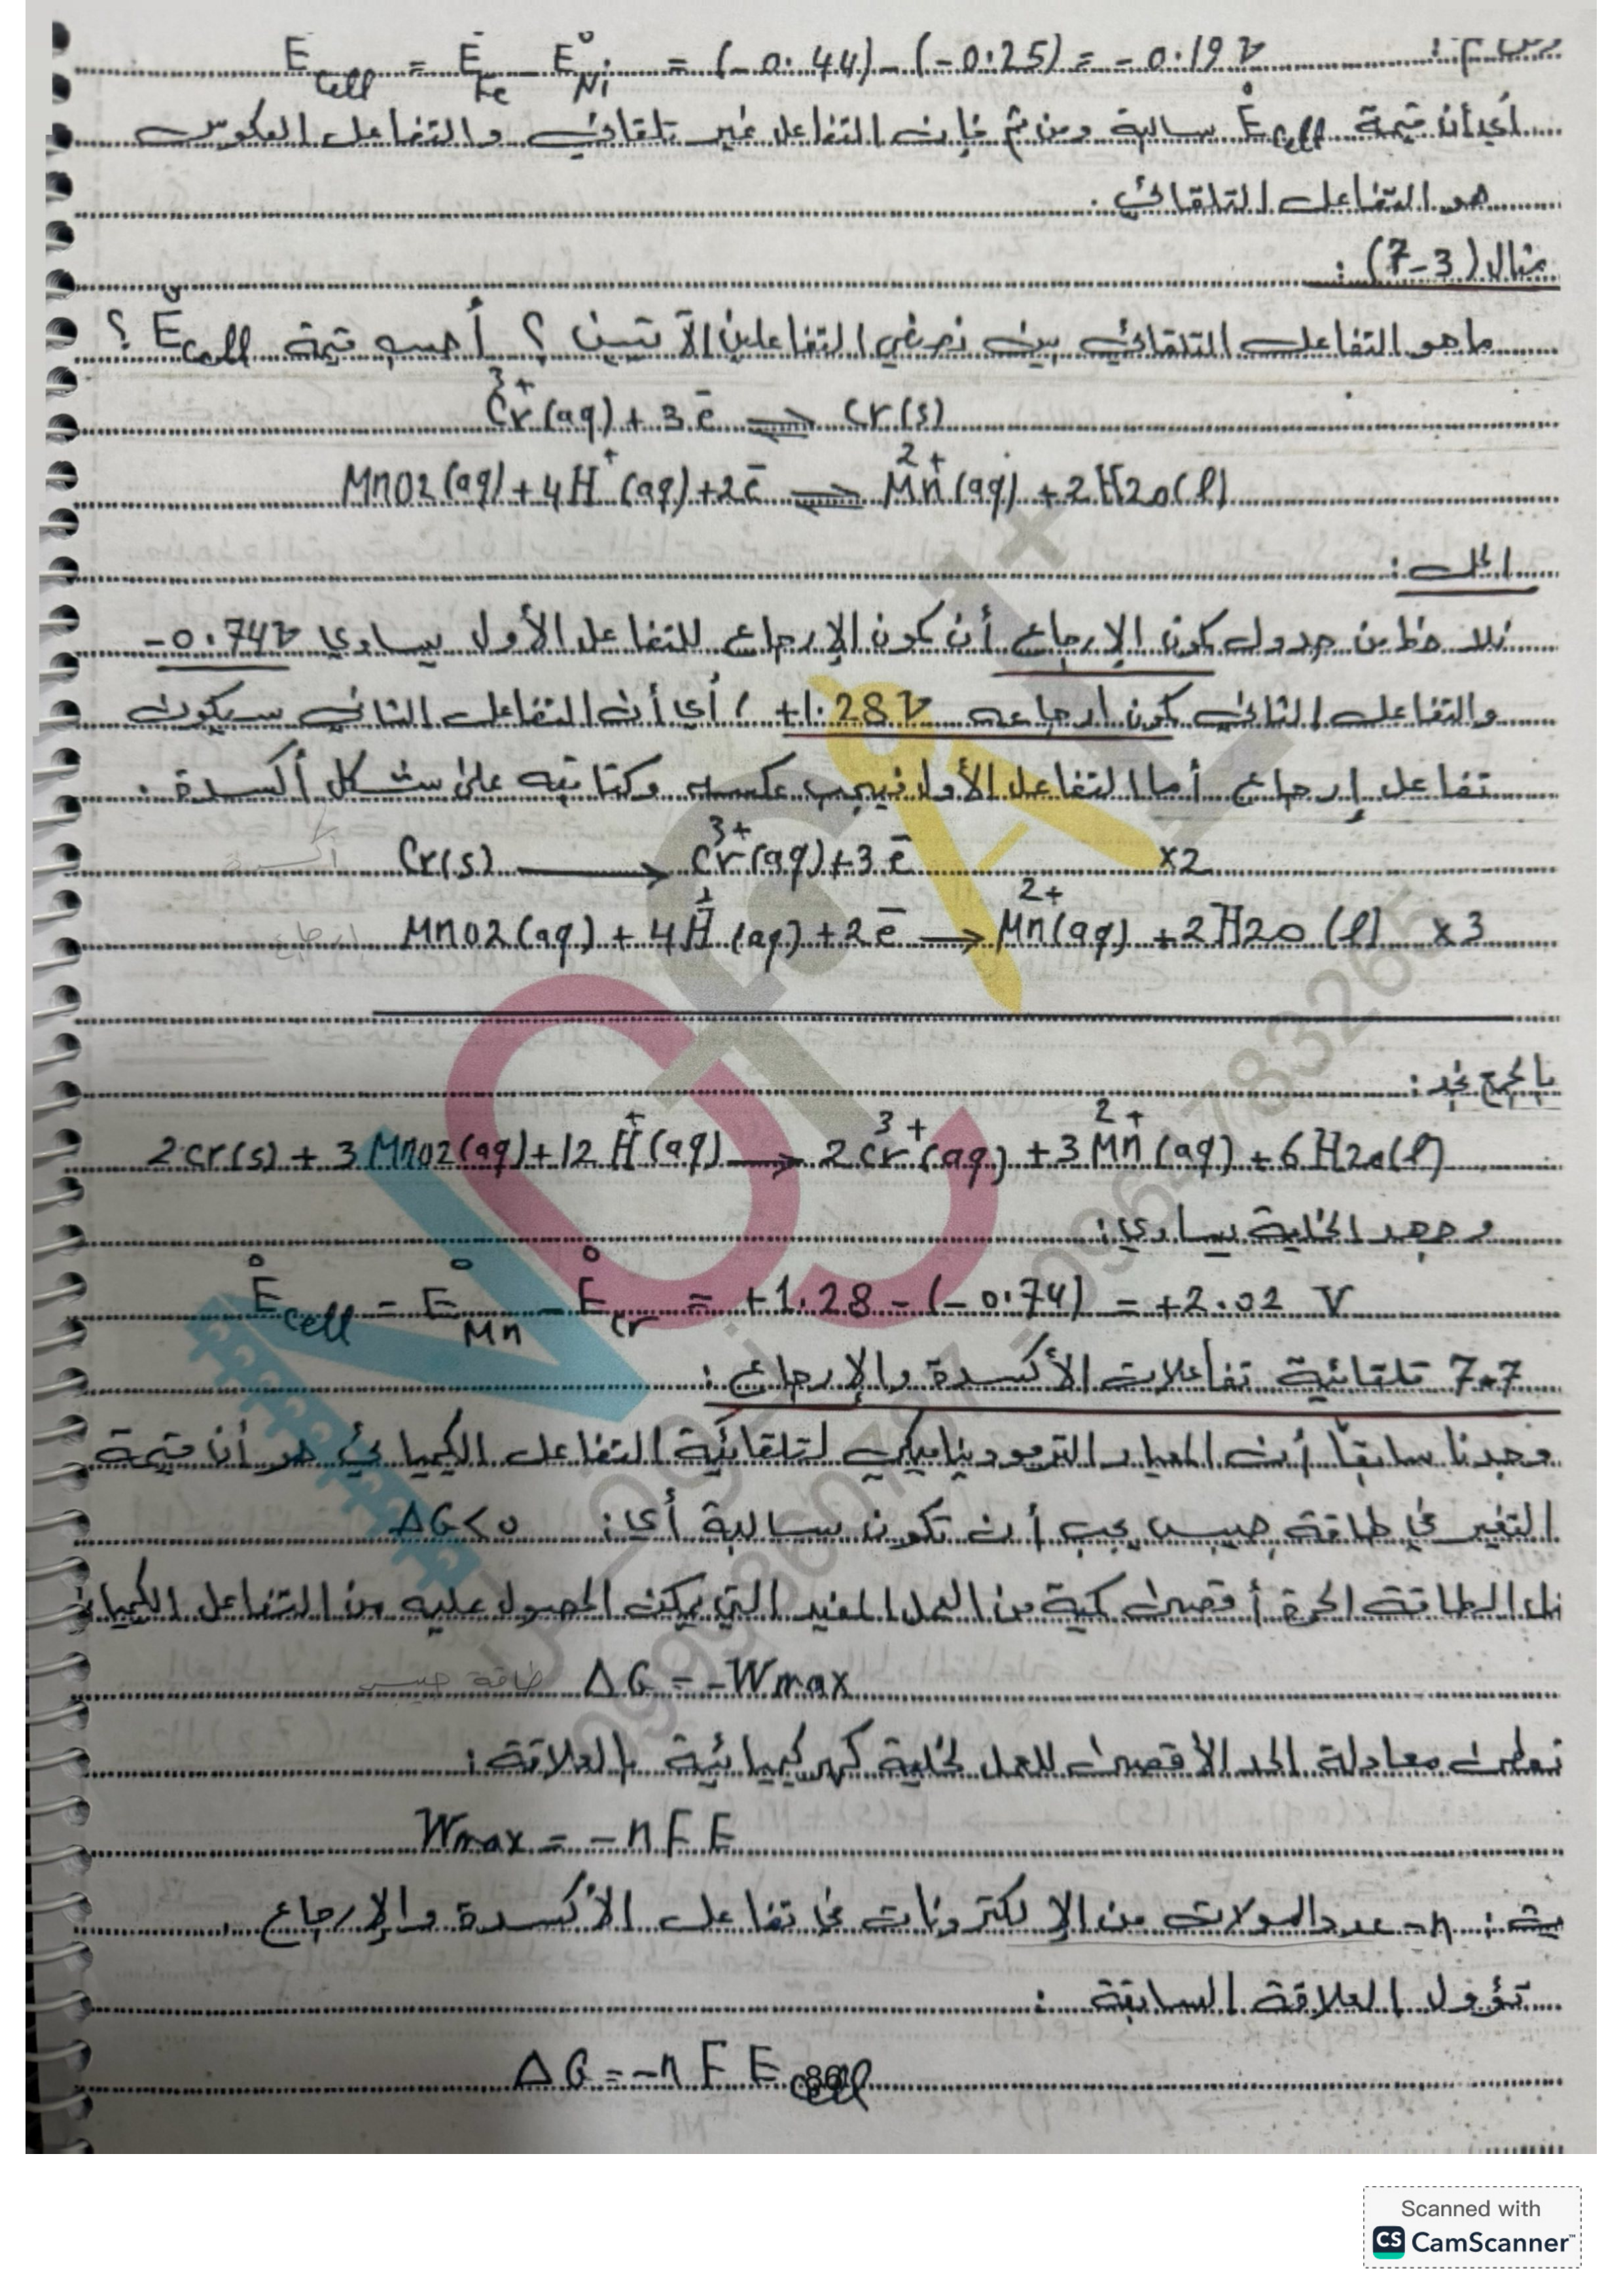 E°cell = E°Fe - E°Ni = (-0.44) - (-0.25) = -0.19 V
أي أن قيمة E°cell سالبة ومن ثم فإن التفاعل غير تلقائي والتفاعل العكوس
هو التفاعل التلقائي.
مثال (7-3):
ما هو التفاعل التلقائي بين نصفي التفاعلين الآتيين؟ أحسب قيمة E°cell؟
Cr3+(aq) + 3e- ⇌ Cr(s)
MnO2(aq) + 4H+(aq) + 2e- ⇌ Mn2+(aq) + 2H2O(l)
الحل:
نلاحظ من جدول كمون الإرجاع أن كمون الإرجاع للتفاعل الأول يساوي -0.74V
والتفاعل الثاني كمون ارجاعه +1.28V، أي أن التفاعل الثاني سيكون
تفاعل إرجاع أما التفاعل الأول فيجب عكسه وكتابته على شكل أكسدة.
Cr(s) → Cr3+(aq) + 3e- ×2 أكسدة
MnO2(aq) + 4H+(aq) + 2e- → Mn2+(aq) + 2H2O(l) ×3 ارجاع
بالجمع نجد:
2Cr(s) + 3MnO2(aq) + 12H+(aq) → 2Cr3+(aq) + 3Mn2+(aq) + 6H2O(l)
وجهد الخلية يساوي:
E°cell = E°Mn - E°Cr = +1.28 - (-0.74) = +2.02 V
7.7 تلقائية تفاعلات الأكسدة والإرجاع:
وجدنا سابقاً أن المعيار الترموديناميكي لتلقائية التفاعل الكيميائي هو أن قيمة
التغير في طاقة جيبس يجب أن تكون سالبة أي: ΔG<0
الطاقة الحرة أقصى كمية من العمل المفيد التي يمكن الحصول عليه من التفاعل
ΔG = -Wmax طاقة جيبس
تعطى معادلة الحد الأقصى للعمل لخلية كهركيميائية بالعلاقة:
Wmax = -nFE
n- عدد المولات من الإلكترونات في تفاعل الأكسدة والإرجاع.
تؤول العلاقة السابقة:
ΔG = -nFEcell
Scanned with
CS CamScanner